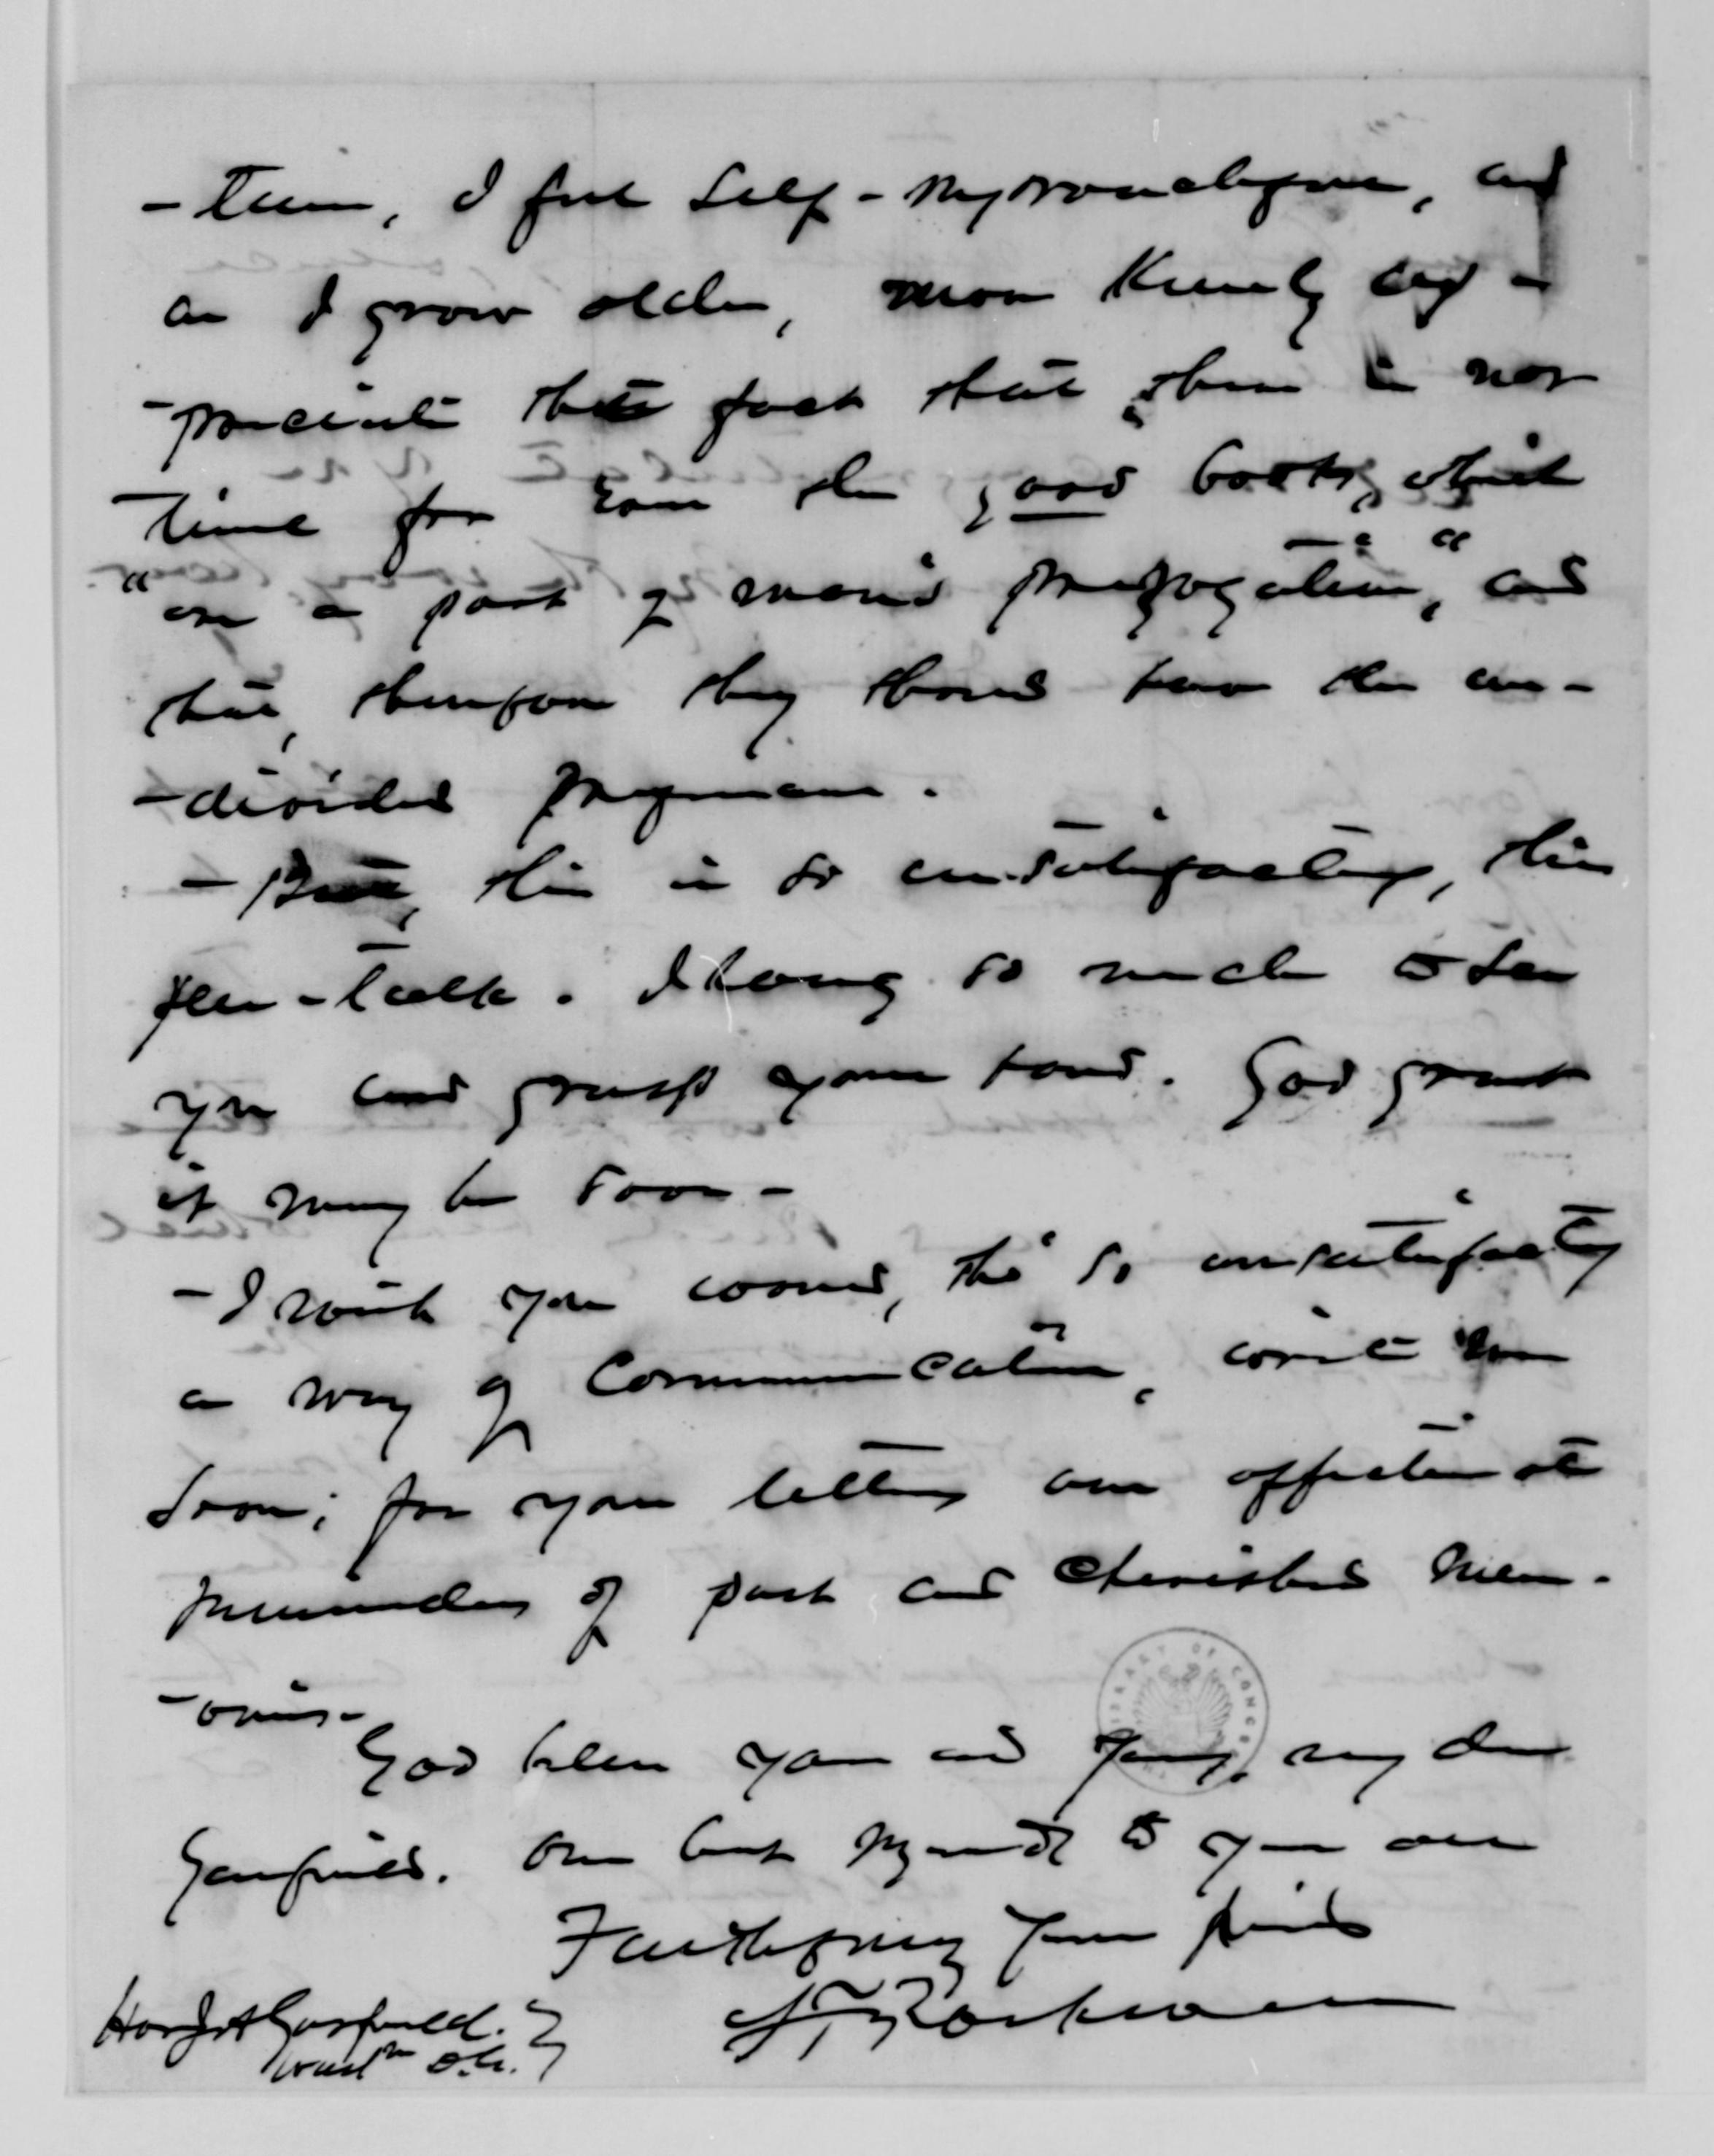 -tem, I feel self-reproachful, and
as I grow older, more keenly ap-
-preciate the fact that there is not
time for even the good books, which
"are a part of man's
that, therefore they should have the un-
-divided
- But, this is so unsatisfactory, this
pen-talk. I long so much to see
you and grasp your hand. God grant
it may be soon -
- I wish you would, tho' so unsatisfactory
a way of communication, write me
soon; for your letters are affectionate
reminders of past and cherished mem-
-ories -
God bless you and yours, my dear
Garfield. Our best regards to you all
Faithfully Your friend
Rockwell
Hon J A Garfield. }
Washn D.C. }
LIBRARY OF CONGRESS